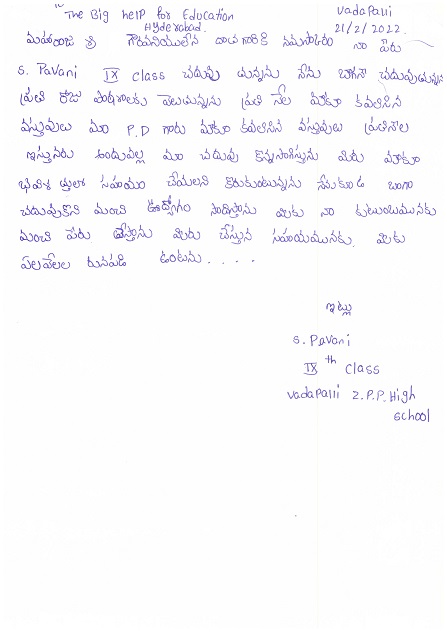 "The Big help for Education Vadapalli
Hyderabad. 21/2/2022.
మహారాజ శ్రీ గౌరవనియులైన దాత గారికి నమస్కారం నా పేరు
S. Pavani IX class చదువు చున్నను నేను బాగా చదువుచున్నను
ప్రతి రోజు పాఠశాలకు వెలుచున్నను ప్రతి నేల మాకూ కవలసిన
వస్తువులు మా P.D గారు మాకూ కవలసిన వస్తువులు ప్రతినెల
ఇస్తునరు అందువల్ల మా చదువు కొన్నసాగిస్తును మీరు మాకూ
సహయం చేయలని కొరుకుంటున్నను నేనుకూడ బాగా
చదువుకొని మంచి ఊద్యోగం సాదిస్తాను మీకు నా కుటుంబమునకు
మంచి పేరు తేస్తాను మీరు చేస్తున సహయమునకు మీకు
ఏలవేలల రునపడి ఉంటను . . . .
ఇట్లు
S. Pavani
IX th class
Vadapalli Z.P.P. High
School